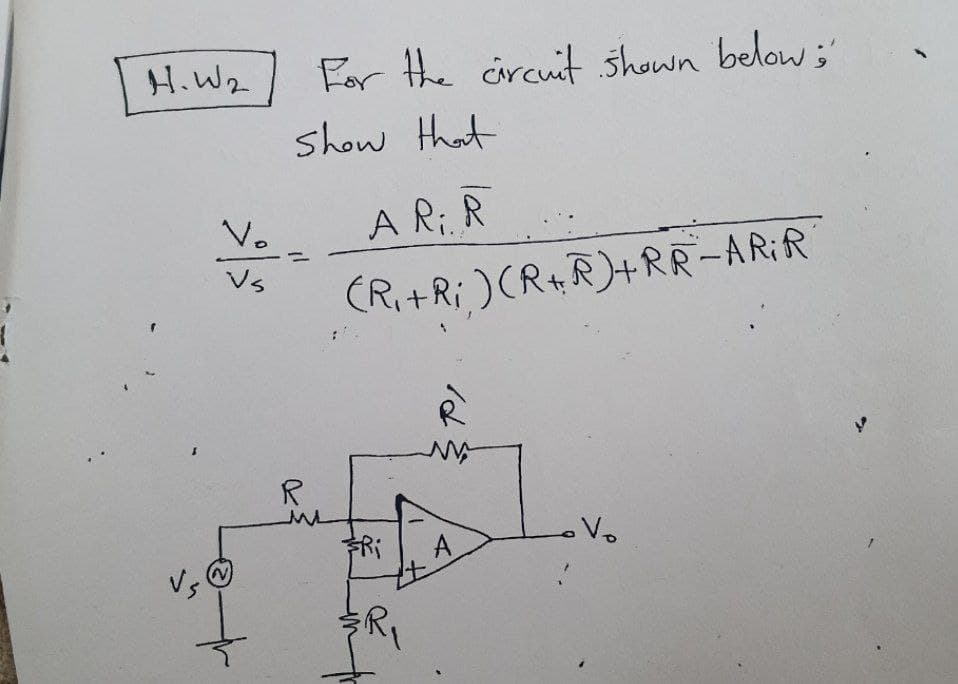 H.W2 For the circuit shown below;
show that
Vo/Vs = A Ri R̅ / (R1+Ri)(R+R̅)+RR̅-ARiR
R`
R
Ri
-
A
+
Vo
Vs
R1